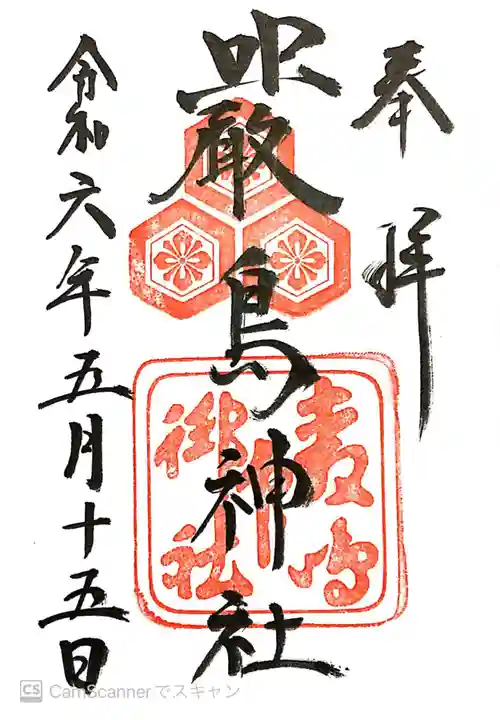 奉拝
嚴島神社
令和六年五月十五日
CS CamScannerでスキャン